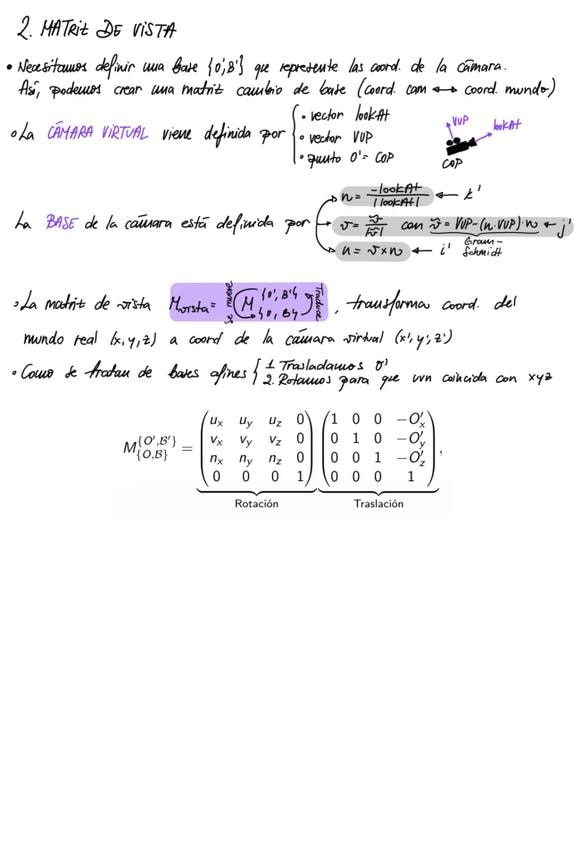 2. MATRIZ DE VISTA
• Necesitamos definir una base {O',B'} que represente las coord. de la cámara.
Así, podemos crear una matriz cambio de base (coord. cam ↔ coord. mundo)
• La CÁMARA VIRTUAL viene definida por { • vector lookAt
• vector VUP
• punto O' = COP
VUP
lookAt
COP
La BASE de la cámara está definida por
n = -lookAt / |lookAt| ← k'
v = ṽ / |ṽ| con ṽ = VUP-(n·VUP)·n ← j'
Gram-Schmidt
u = v×n ← i'
• La matriz de vista Mvista = se mueve (M {O',B'} {O,B}) Traduce, transforma coord. del
mundo real (x,y,z) a coord de la cámara virtual (x',y',z')
• Como se tratan de bases afines { 1 Trasladamos O'
2. Rotamos para que uvn coincida con xyz
M {O',B'} {O,B} = (u_x u_y u_z 0) (1 0 0 -O'_x)
(v_x v_y v_z 0) (0 1 0 -O'_y)
(n_x n_y n_z 0) (0 0 1 -O'_z)
(0 0 0 1) (0 0 0 1) ,
Rotación Traslación